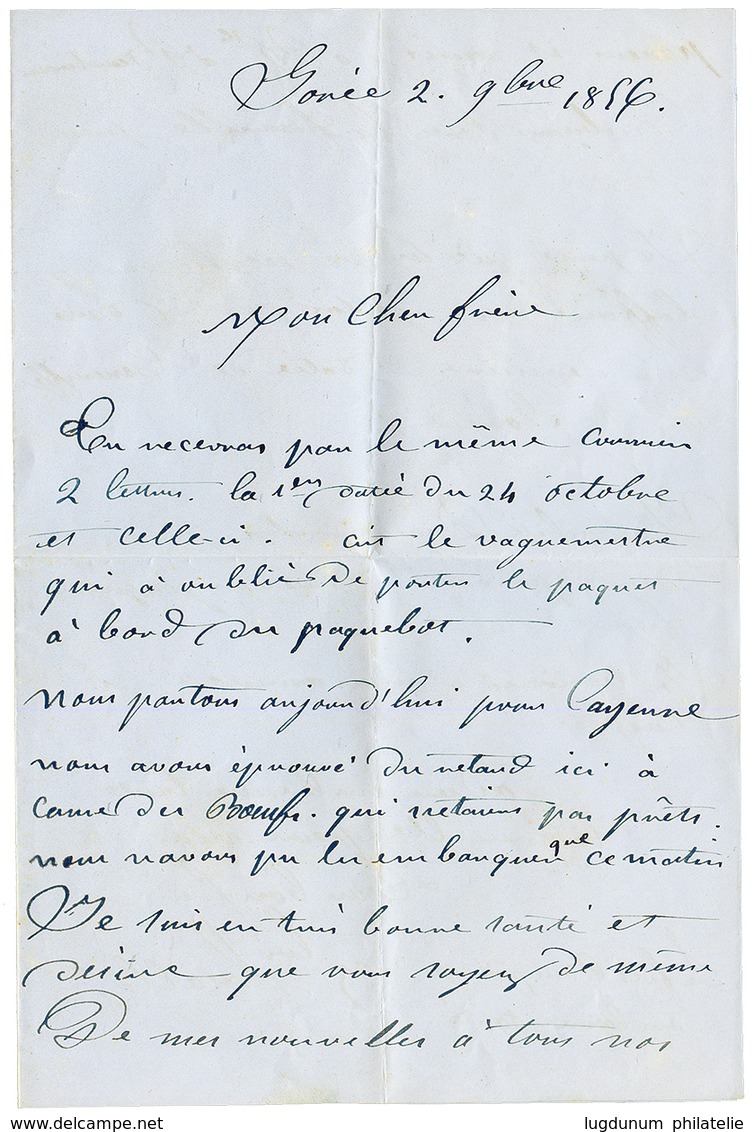 Gorée 2. 9bre 1856.
Mon Cher frère
Tu recevras par le même courrier
2 lettres. la 1ere datée du 24 octobre
et celle-ci. c'est le vaguemestre
qui à oublié de porter le paquet
à bord du paquebot.
nous partons aujourd'hui pour Cayenne
nous avons éprouvé du retard ici à
cause des Boeufs. qui n'étaient pas prêts.
nous n'avons pu les embarquer que ce matin
Je suis en très bonne santé et
désire que vous soyez de même
De mes nouvelles à tous nos
lugdunum philatelie